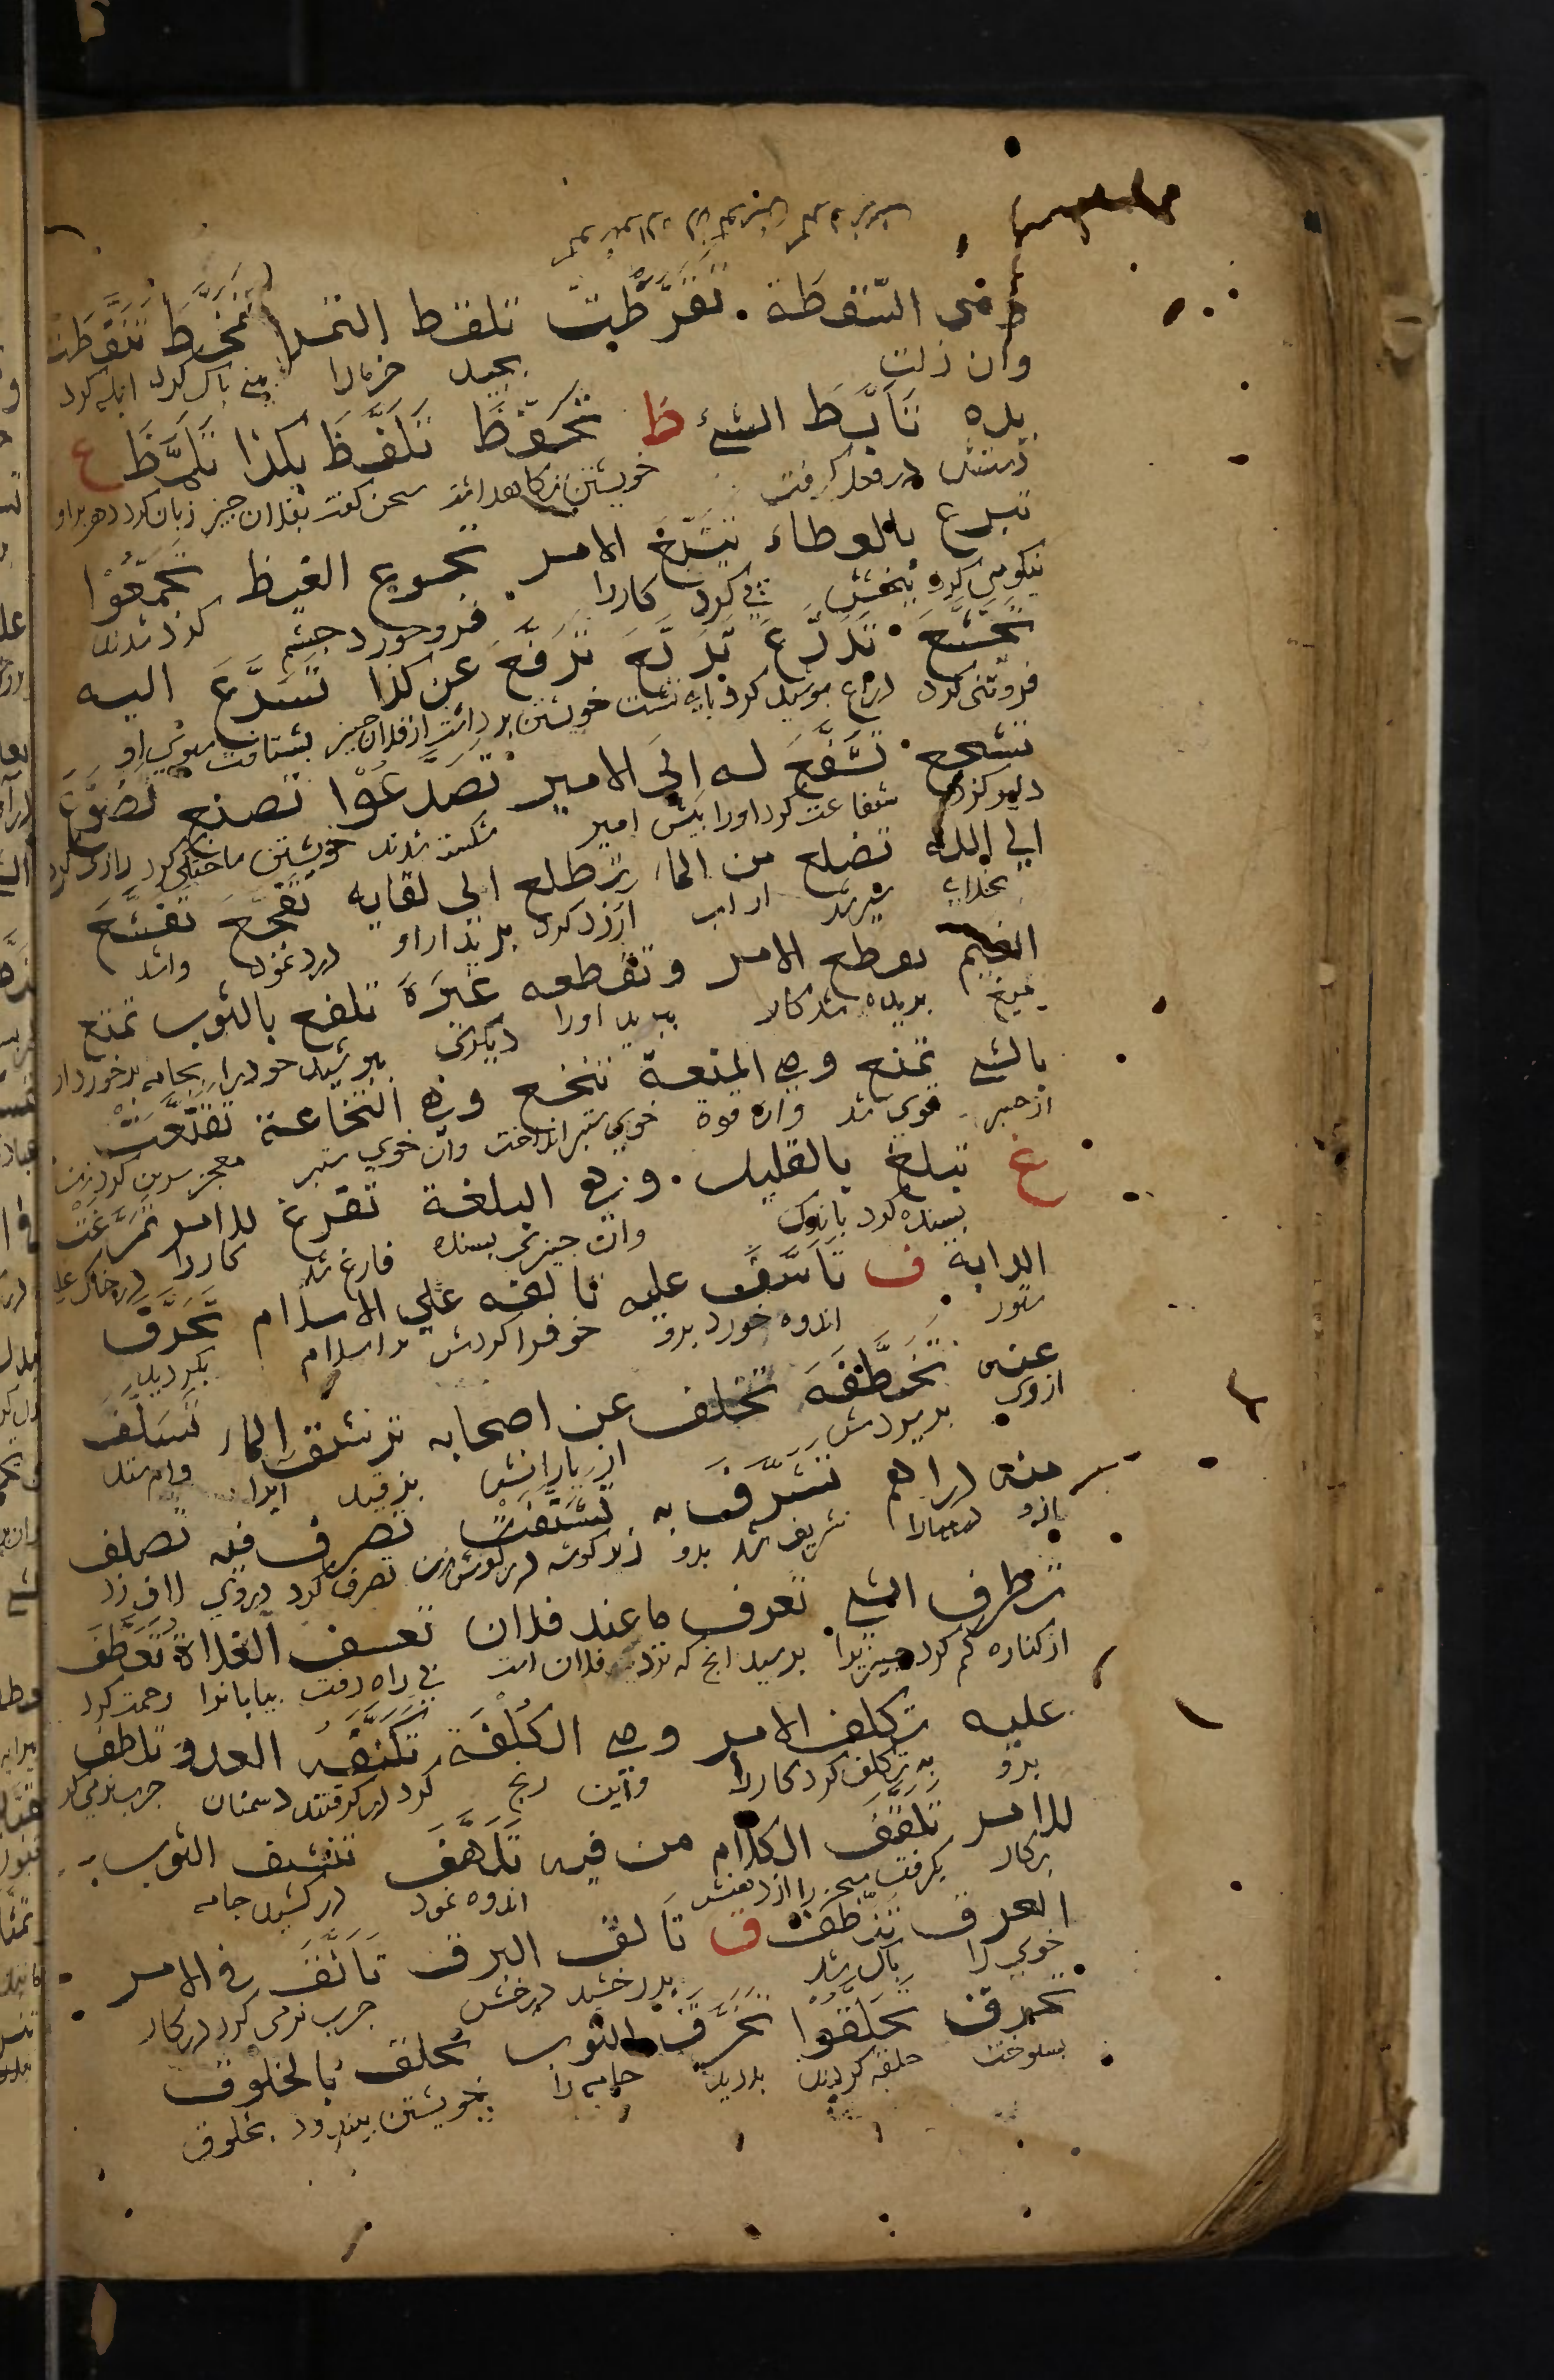 وهي السقطة. تقرطت تلقط التمر تمخط تنفطت
وان زلت بچيد خرما را بيني پاك كرد ابله كرد
يده تأبط الشيء ظ تحفظ تلفظ بكذا تلمظ ع
دستش در بغل گرفت خويشتن نگاه داشت سخن گفت بفلان چيز زبان كرد دهن او
تبرع بالعطاء تتبع الامر تجرع الغيظ تجمعوا
نيكويى كرد ببخشش پي كرد كار را فرو خورد خشم گرد شدند
تخشع تدرع تربع ترفع عن كذا تسرع اليه
فروتنى كرد درع پوشيد گرد پاي نشست خويشتن برداشت از فلان چيز بشتافت سوي او
تشجع تشفع له الى الامير تصدعوا تصنع تضرع
دلير كرد شفاعت كرد او را پيش امير شكسته شدند خويشتن ساختگى كرد زارى كرد
الي الله تضلع من الماء تطلع الي لقايه تفجع تقشع
بخداي سير شد از آب آرزو كرد بديدار او درد نمود واشد
الغيم تقطع الامر وتقطعه غيره تلفع بالثوب تمتع
ميغ بريده شد كار ببريد او را ديگرى بپوشيد خود را بجامه برخوردار
بالشيء تمنع وهي المنعة تنخع وهي النخاعة تقنعت
از چيز قوي شد وان قوة خوي ستبر انداخت وان خوي ستبر معجر بسر كرد زن
غ تبلغ بالقليل. وهي البلغة تفرغ للامر تمرغت
بسنده كرد باندك وان چيزى بسنده فارغ شد كار را در خاك غلـ
الدابة ف تأسف عليه تألفه علي الاسلام تحرف
ستور اندوه خورد برو خو فرا كردش بر اسلام بگرديد
عنه تخطفه تخلف عن اصحابه ترشف الماء تسلف
از وى بربودش از يارانش بمزيد آب را وام ستد
منه دراهم تشرف به تشنفت تصرف فيه تصلف
ازو درمها را شريف شد بدو زن گوشه در گوش تصرف كرد دروي لاف زد
تطرف الشيء تعرف ما عند فلان تعسف الفلاة تعطف
از كناره كم كرد چيز را بپرسيد انچ كه نزديك فلان است بي راه رفت بيابان را رحمت كرد
عليه تكلف الامر وهي الكلفة تكنفه العدو تلطف
برو بتكلف كرد كار را واين رنج گرد در گرفتند دشمنان چرب نرمى كرد
للامر تلقف الكلام من فيه تلهف تنشف الثوب
بركار بگرفت سخن را از دهنش اندوه نمود در كشيد جامه
العرق تنظف ق تألق البرق تأنق في الامر
خوي را پاك شد بدرخشيد درخش چرب نرمى كرد در كار
تحرق تحلقوا تخرق الثوب تخلق بالخلوق
بسوخت حلقه كردند بدريد جامه را خويشتن بيندود بخلوق